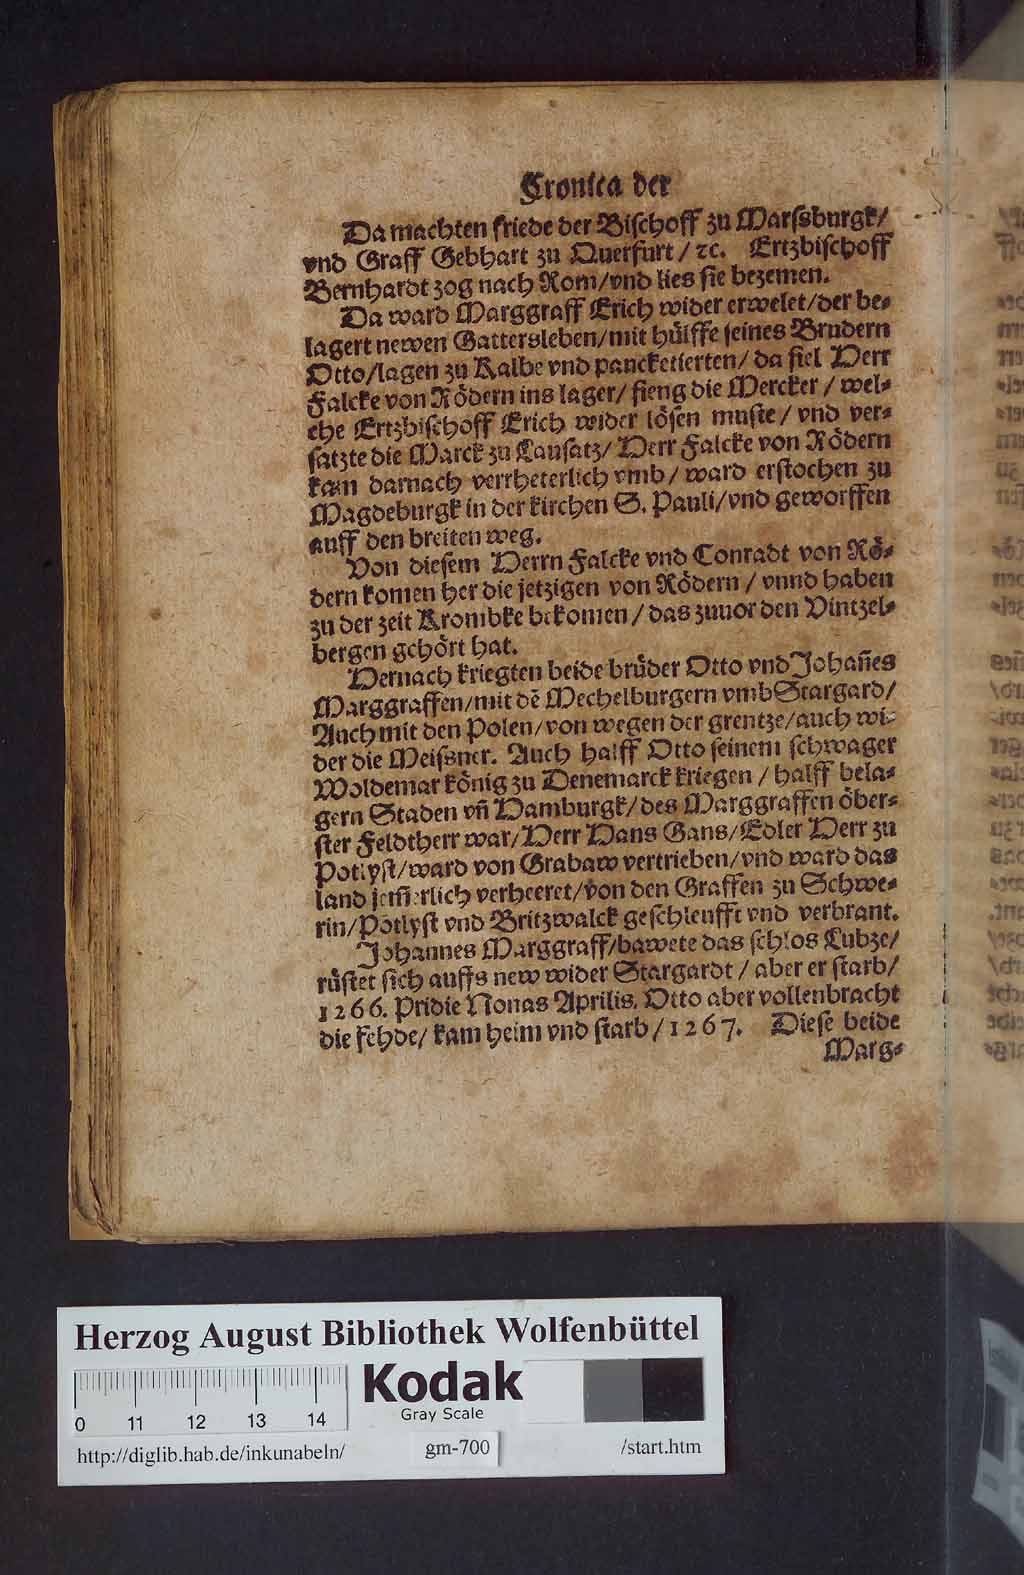 Cronica der
Da machten friede der Bischoff zu Marssburgk/
vnd Graff Gebhart zu Querfurt / ꝛc. Ertzbischoff
Bernhardt zog nach Rom/vnd lies sie bezemen.
Da ward Marggraff Erich wider erwelet/der be⸗
lagert newen Gattersleben/mit hülffe seines Brudern
Otto/lagen zu Kalbe vnd panckettierten/ da fiel Herr
Falcke von Rödern ins lager/ fieng die Mercker / wel⸗
che Ertzbischoff Erich wider lösen muste/ vnd ver⸗
satzte die Marck zu Lausatz/ Herr Falcke von Rödern
kam darnach verrheterlich vmb/ ward erstochen zu
Magdeburgk in der kirchen S. Pauli/vnd geworffen
auff den breiten weg.
Von diesem Herrn Falcke vnd Conradt von Rö⸗
dern komen her die jetzigen von Rödern / vnnd haben
zu der zeit Krombke bekomen / das zuuor den Vintzel⸗
bergen gehört hat.
Hernach kriegten beide brüder Otto vnd Johañes
Marggraffen/mit dē Mechelburgern vmb Stargard/
Auch mit den Polen/von wegen der grentze/auch wi⸗
der die Meissner. Auch halff Otto seinem schwager
Woldemar könig zu Denemarck kriegen / halff bela⸗
gern Staden vñ Hamburgk/des Marggraffen öber⸗
ster Feldtherr war/Herr Hans Gans/Edler Herr zu
Potlyst/ward von Grabaw vertrieben/vnd ward das
land jem̄erlich verheeret/von den Graffen zu Schwe⸗
rin/Potlyst vnd Britzwalck geschleufft vnd verbrant.
Johannes Marggraff/bawete das schlos Lubze/
rüstet sich auffs new wider Stargardt / aber er starb/
1266. Pridie Nonas Aprilis. Otto aber vollenbracht
die Fehde/ kam heim vnd starb/1267. Diese beide
Marg⸗
Herzog August Bibliothek Wolfenbüttel
0 11 12 13 14
Kodak
Gray Scale
http://diglib.hab.de/inkunabeln/ gm-700 /start.htm